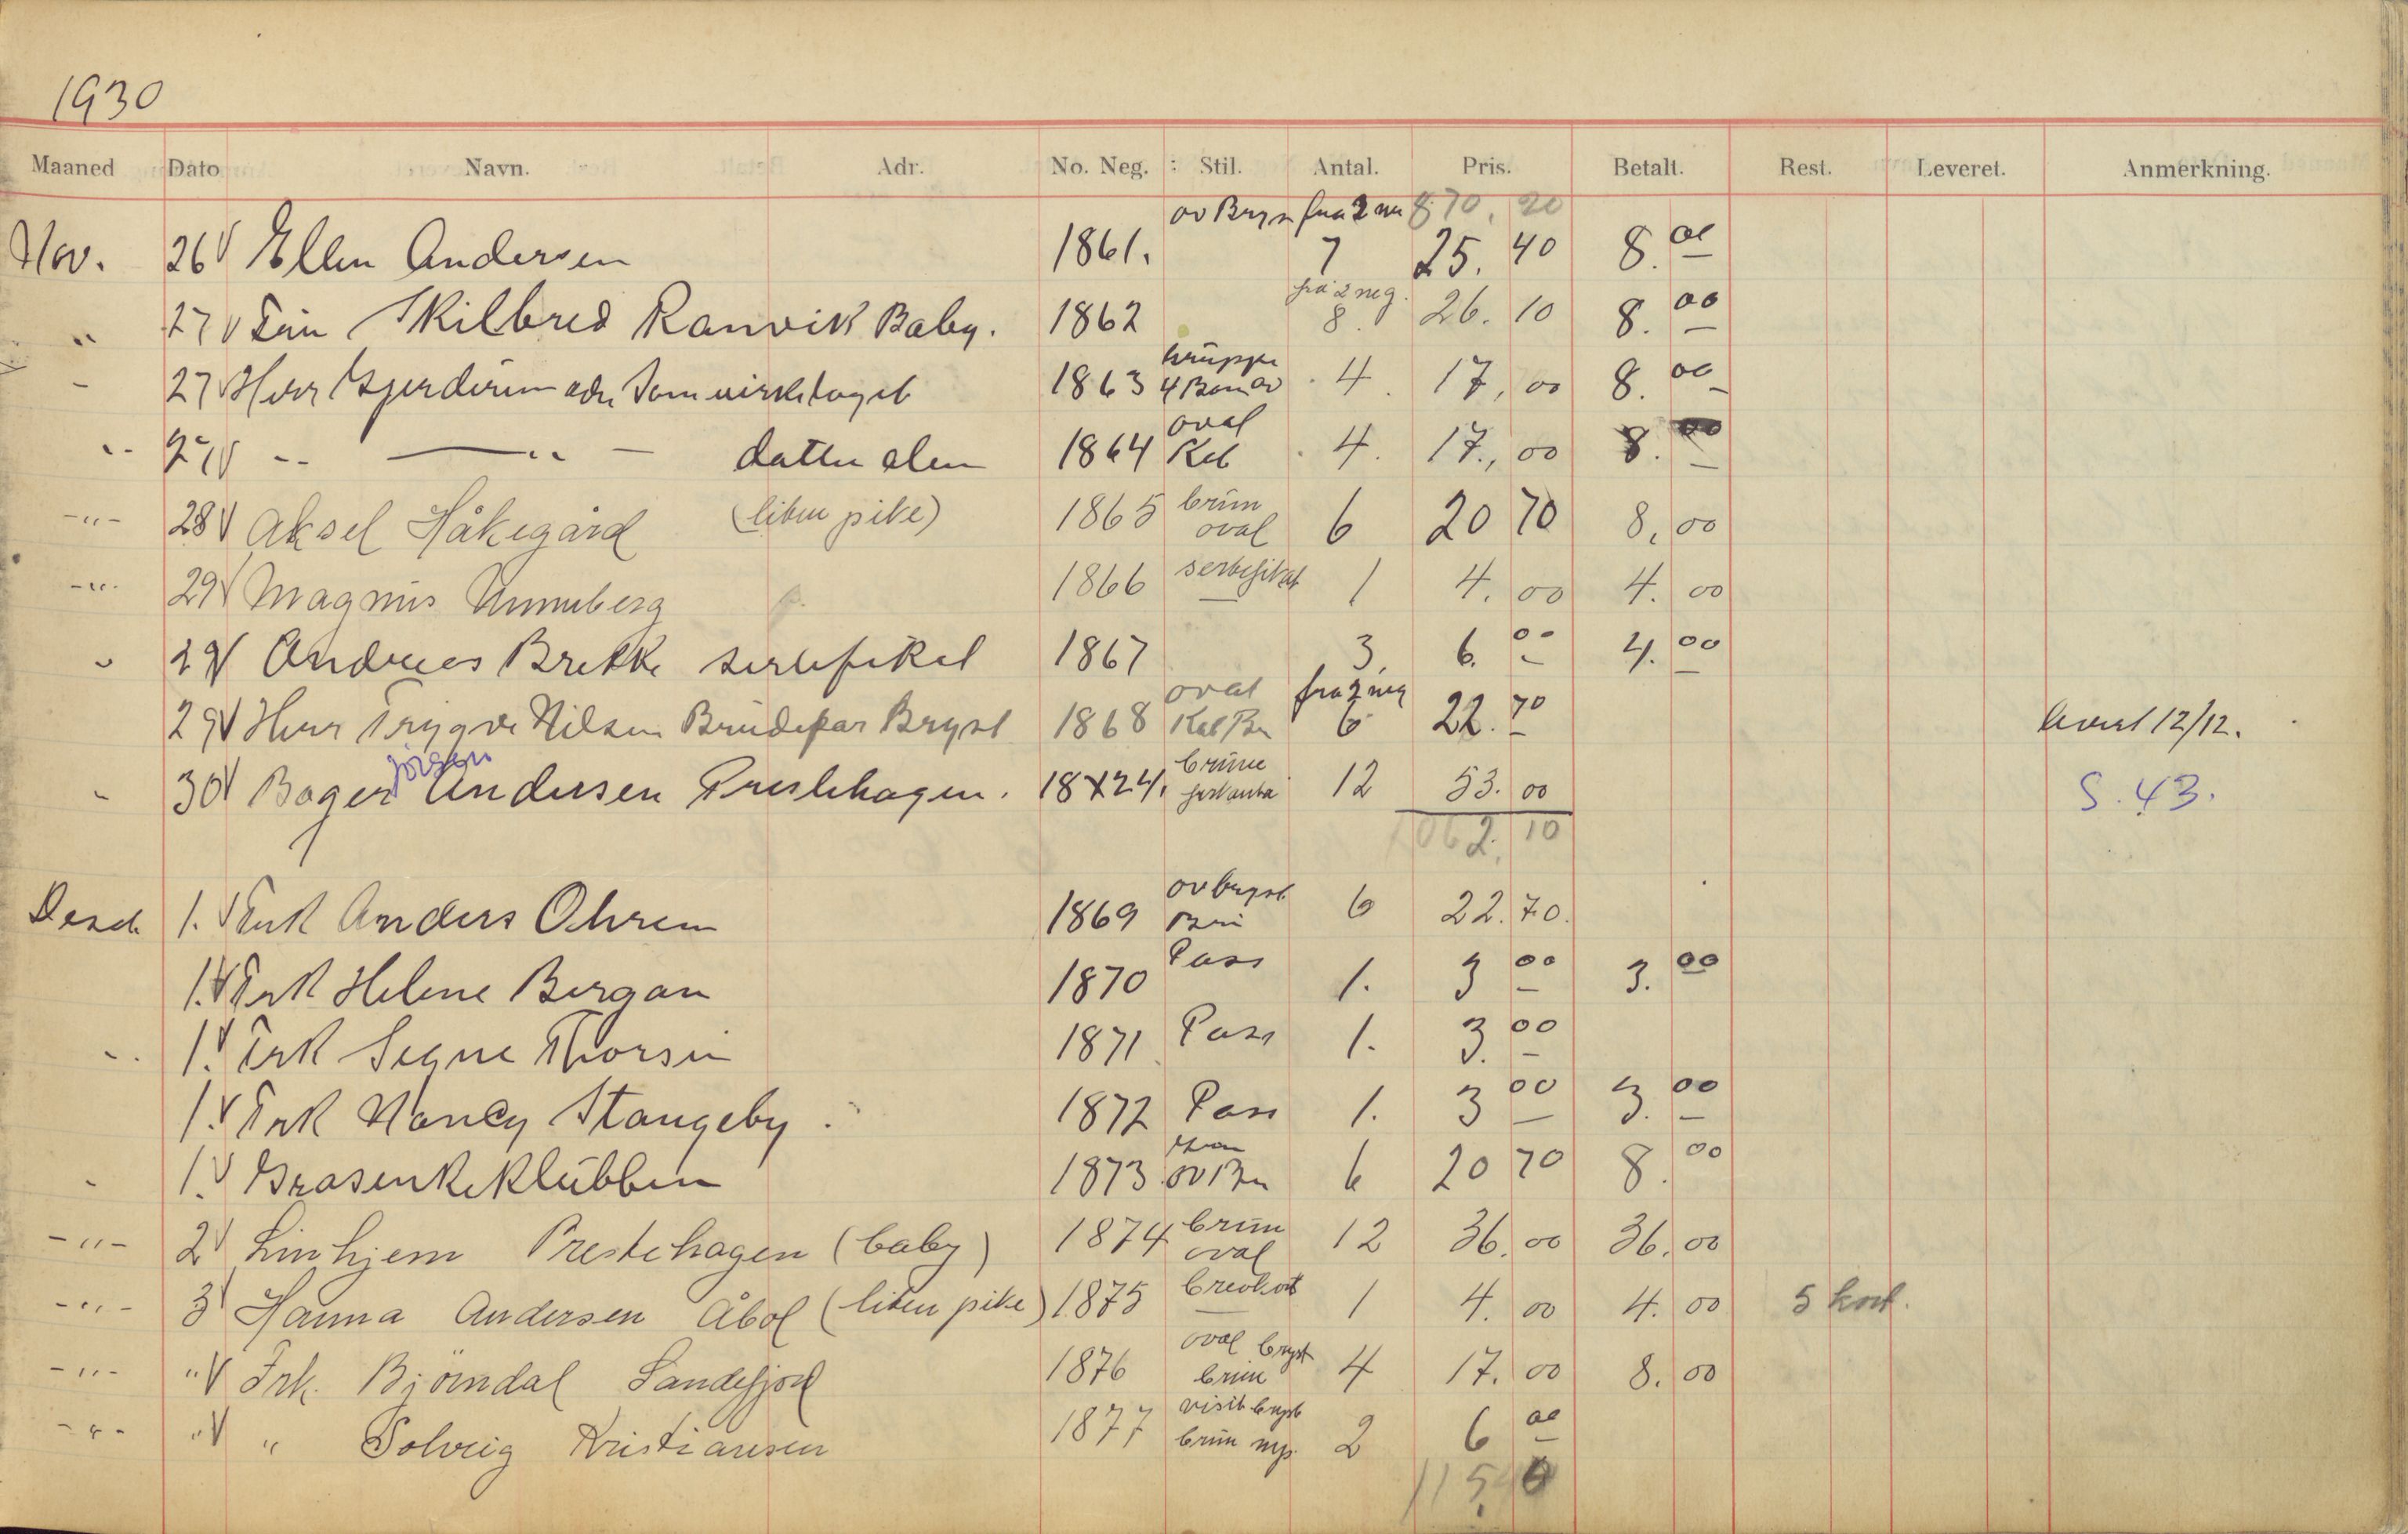 1930
Maaned Dato Navn. Adr. No. Neg. Stil. Antal. Pris. Betalt. Rest. Leveret. Anmerkning.
ov Brys fra 2 870,20
Nov. 26 Ellen Andersen 1861. 7 25.40 8.00
fra 2 neg.
" 27 Skilbred Ranvik Baby. 1862 8. 26.10 8.00
Gruppe
27 Herr Gjerderum 1863 4 4. 17,00 8.00
oval
" 27 " — " — datter alen 1864 4. 17,00 8.00
-"- 28 Aksel Håkegård (liten pike) 1865 brun oval 6 20 70 8,00
-"- 29 Magnus Unneberg 1866 sertifikat 1 4.00 4.00
" 29 Andrees Brekke sertifikat 1867 3. 6.00 4.00
oval fra 2 neg
29 Herr Trygve Nilsen Brudepar Bryst 1868 6 22.70 levert 12/12.
jörgen brune
" 30 Bager Andersen Prestehagen. 18724. 12 53.00 S. 43.
1062,10
ov bryst
Desd. 1. Frk Anders Ohrem 1869 Bru 6 22.70.
1. Frk Helene Bergan 1870 Pass 1. 3 00 3.00
" 1. Frk Signe Thorsen 1871 Pass 1. 3.00
1. Frk Nancy Stangeby. 1872 Pass 1. 3 00 3.00
" 1. Grasenkeklubben 1873 6 20 70 8.00
-"- 2 Linhjem Prestehagen (baby) 1874 brun oval 12 36.00 36.00
-"- 3 Hanna Andersen Åbol (liten pike) 1875 brevkort 1 4.00 4.00 5 kort.
-"- " Frk. Björndal Sandefjord 1876 oval bryst brun 4 17.00 8.00
-"- " " Solveig Kristiansen 1877 visit bryst brun 2 6 00